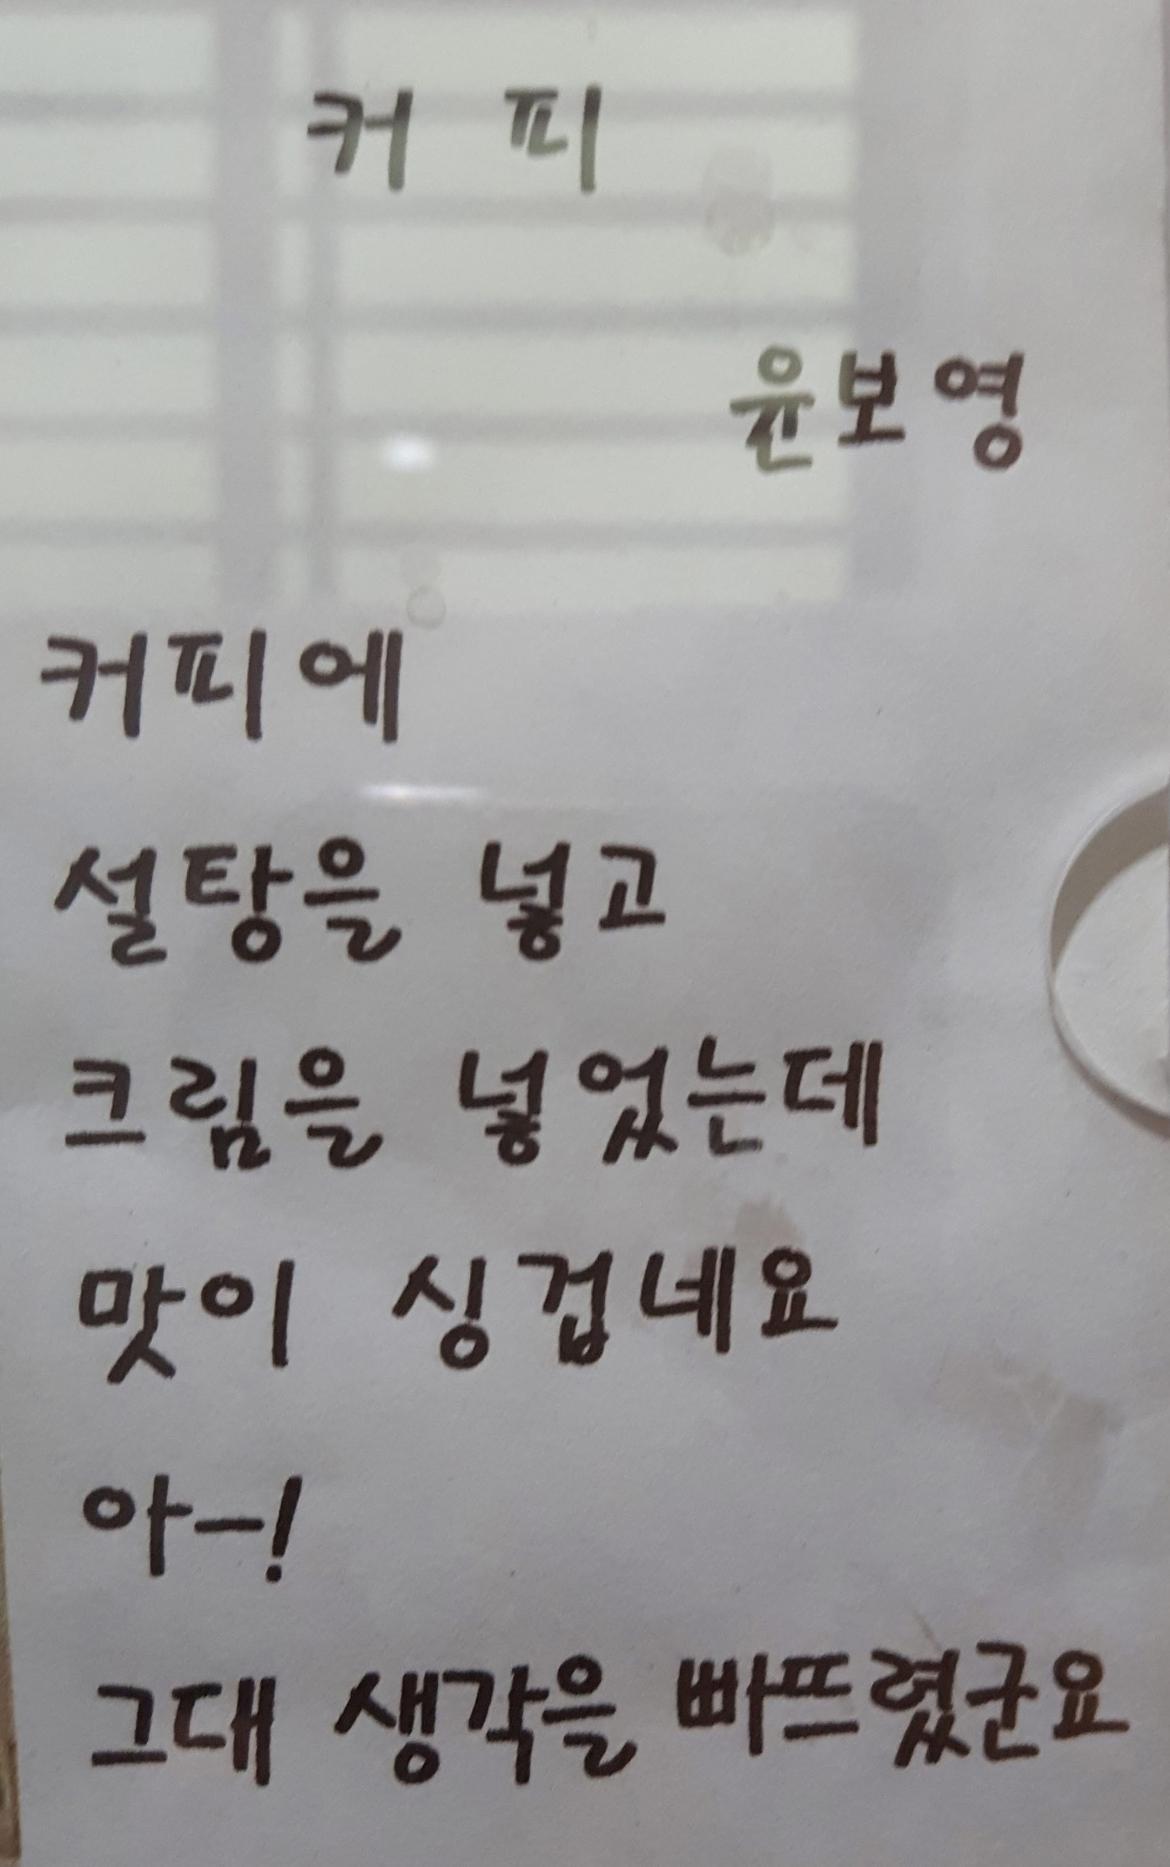 커 피
윤보영
커피에
설탕을 넣고
크림을 넣었는데
맛이 싱겁네요
아-!
그대 생각을 빠뜨렸군요